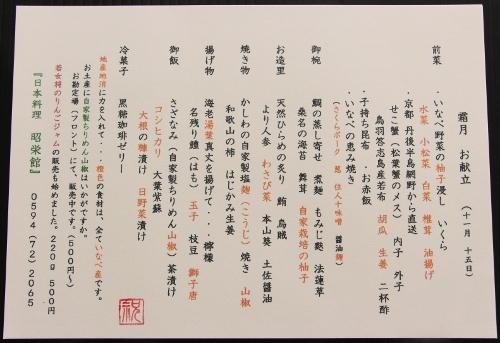 霜月 お献立 (十一月 十五日)
前菜 ・いなべ野菜の柚子浸し いくら
水菜 小松菜 白菜 椎茸 油揚げ
・京都 丹後半島網野から直送
せこ蟹(松葉蟹のメス) 内子 外子
鳥羽答志島産若布 胡瓜 生姜 二杯酢
・子持ち昆布 ・お赤飯
・いなべの恵み焼き
(さくらポーク 葱 住人十味噌 醤油麹)
御椀 鯛の蒸し寄せ 煮麺 もみじ麩 法蓮草
桑名の海苔 舞茸 自家栽培の柚子
お造里 天然ひらめの炙り 鮪 烏賊
より人参 わさび菜 本山葵 土佐醤油
焼き物 かしわの自家製塩麹(こうじ)焼き 山椒
和歌山の柿 はじかみ生姜
揚げ物 海老湯葉真丈を揚げて・・・檸檬
名残り鱧(はも) 玉子 枝豆 獅子唐
御飯 さざなみ(自家製ちりめん山椒)茶漬け
コシヒカリ 大葉紫蘇
大根の糠漬け 日野菜漬け
冷菓子 黒糖珈琲ゼリー
地産地消に力を入れて・・・橙色の食材は、全ていなべ産です。
お土産に自家製ちりめん山椒はいかがですか。
お勘定場(フロント)にて、販売中です。(500円〜)
若女将のりんごジャムの販売も始めました。220g 500円
『日本料理 昭栄館』 0594(72)2065
祝